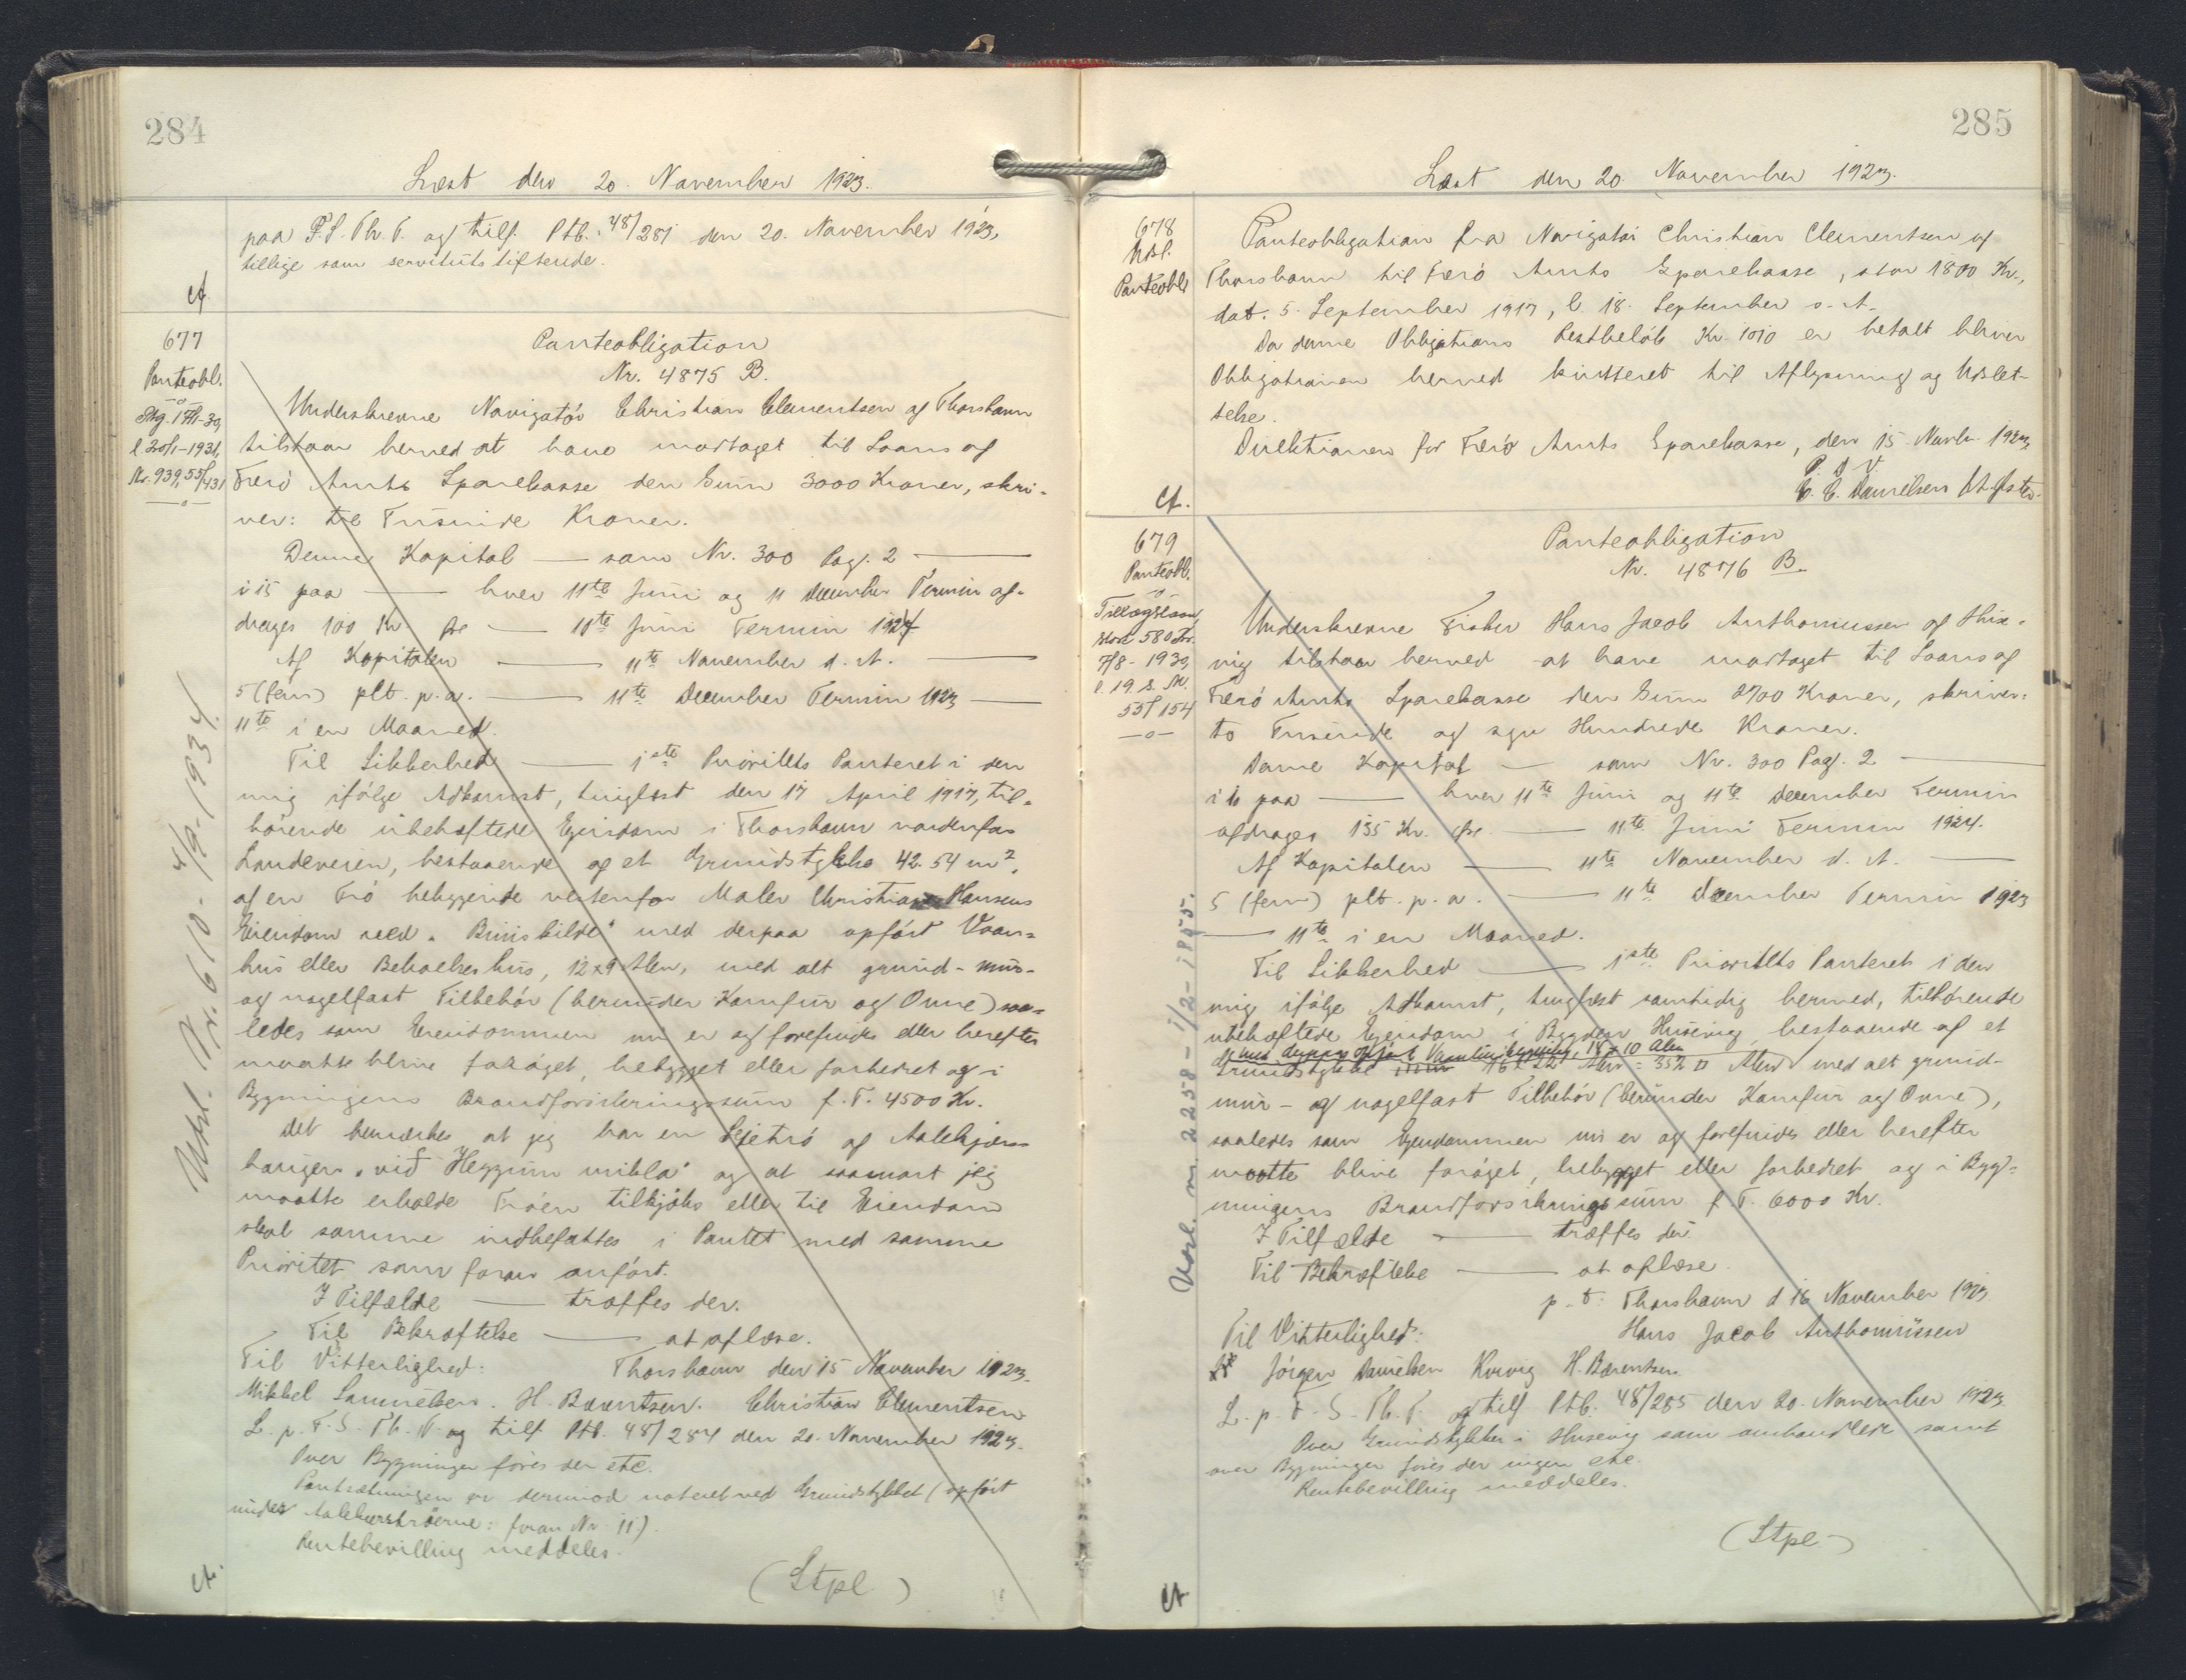 284
Læst den 20. November 1923.
paa F.S. Th. T. og tilf. Ptb. 48/281 den 20. November 1923,
tillige som servitutstiftende.
677
Panteobl.
Panteobligation
Nr. 4875 B.
Underskrevne Navigatör Christian Clementsen af Thorshavn
tilstaar herved at have modtaget til Laans af
Færö Amts Sparekasse den Sum 3000 Kroner, skri-
ver: tre Tusinde Kroner.
Denne Kapital — som Nr. 300 Pag. 2 —
i 15 paa — hver 11te Juni og 11 December Termin af-
drages 100 Kr. — 11te Juni Termin 1924
Af Kapitalen — 11te November d. A. —
5 (fem) pCt. p.a. — 11te December Termin 1923 —
11te i en Maaned.
Til Sikkerhed — 1ste Prioritets Panteret i den
mig ifölge Adkomst, tinglæst den 17 April 1917, til-
hörende ubehæftede Ejendom i Thorshavn nordenfor
Landeveien, bestaaende af et Grundstykke 42.54 m²,
af en Trö beliggende vestenfor Maler Christian Hansens
Eiendom ved „Brunskilde" med derpaa opfört Vaan-
hus eller Beboelseshus, 12x9 Alen, med alt grund- mur-
og nagelfast Tilbehör (herunder Komfur og Ovne) saa-
ledes som Eiendommen nu er og forefindes eller herefter
maatte blive foröget, bebygget eller forbedret og i
Bygningens Brandforsikringssum f. T. 4500 Kr.
Det bemærkes at jeg har en Lejetrö af Aalekjærs
haugen „við Heyggin mikla" og at saasnart jeg
maatte erholde Tröen tilkjöbs eller til Eiendom
skal samme indbefattes i Pantet med samme
Prioritet som foran anfört.
I Tilfælde — træffes der.
Til Bekræftelse — at aflæse.
Til Vitterlighed: Thorshavn den 15 November 1923.
Mikkel Samuelsen. H. Bærentsen. Christian Clementsen
L. p. F. S. Th. T. og tilf Ptb. 48/284 den 20. November 1923.
Over Bygninger föres der etc.
Pantsætningen er derimod noteret ved Grundstykket (opfört
under : foran Nr. 11).
Rentebevilling meddeles.
(Stpl.)
Utsl. Nr. 610 - 4/9 - 1934.
285
Læst den 20 November 1923.
678
Udsl.
Panteobl
Panteobligation fra Navigatör Christian Clementsen af
Thorshavn til Færö Amts Sparekasse, stor 1800 Kr.,
dat. 5. September 1917, l. 18. September s. A.
Da denne Obligations Restbelöb Kr. 1010 er betalt bliver
Obligationen herved kvitteret til Aflysning og Udslet-
telse.
Direktionen for Færö Amts Sparekasse, den 15. Novbr. 1923,
P. D. V.
C. C. Danielsen
679
Panteobl.
Tillægslaan
stor 580 Kr.
7/8 - 1930,
l. 19. s. M.
55/154
Panteobligation
Nr. 4876 B.
Underskrevne Fisker Hans Jacob Anthoniussen af Huse-
vig tilstaar herved at have modtaget til Laans af
Færö Amts Sparekasse den Sum 2700 Kroner, skriver:
to Tusinde og syv Hundrede Kroner.
Denne Kapital — som Nr. 300 Pag. 2 —
i 10 paa — hver 11te Juni og 11te December Termin
afdrages 135 Kr. — 11te Juni Termin 1924.
Af Kapitalen — 11te November d. A. —
5 (fem) pCt. p. a. — 11te December Termin 1923
— 11te i en Maaned.
Til Sikkerhed — 1ste Prioritets Panteret i den
mig ifölge Adkomst, tinglæst samtidig hermed, tilhörende
ubehæftede Ejendom i Bygden Husevig bestaaende af et
med derpaa opfört Vaaningsbygning, 18 x 10 Alen
Grundstykke 16 x 22 Alen = 352 □ Alen med alt grund-
mur- og nagelfast Tilbehör (herunder Komfur og Ovne),
saaledes som Ejendommen nu er og forefindes eller herefter
maatte blive foröget, bebygget eller forbedret og i Byg-
ningens Brandforsikringssum f. T. 6000 Kr.
I Tilfælde — træffes der.
Til Bekræftelse — at aflæse.
p. t. Thorshavn d 16 November 1923
Til Vitterlighed: Hans Jacob Anthoniussen
Jörgen Danielsen Kvivig H. Bærentsen
L. p. F. S. Th. T. og tilf Ptb. 48/285 den 20. November 1923.
Over Grundstykker i Husevig som omhandlede samt
over Bygninger föres der ingen etc.
Rentebevilling meddeles.
(Stpl.)
Udsl. nr. 2258 - 1/2 - 1955.